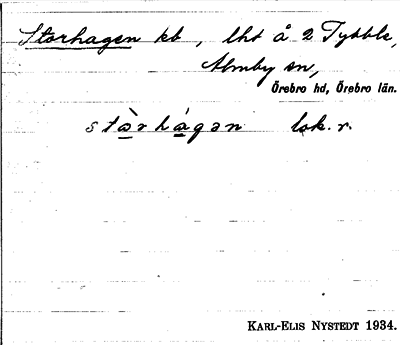 Storhagen kb, lht å 2 Tybble,
Almby sn,
Örebro hd, Örebro län.
stàrhágan lok. r.
KARL-ELIS NYSTEDT 1934.